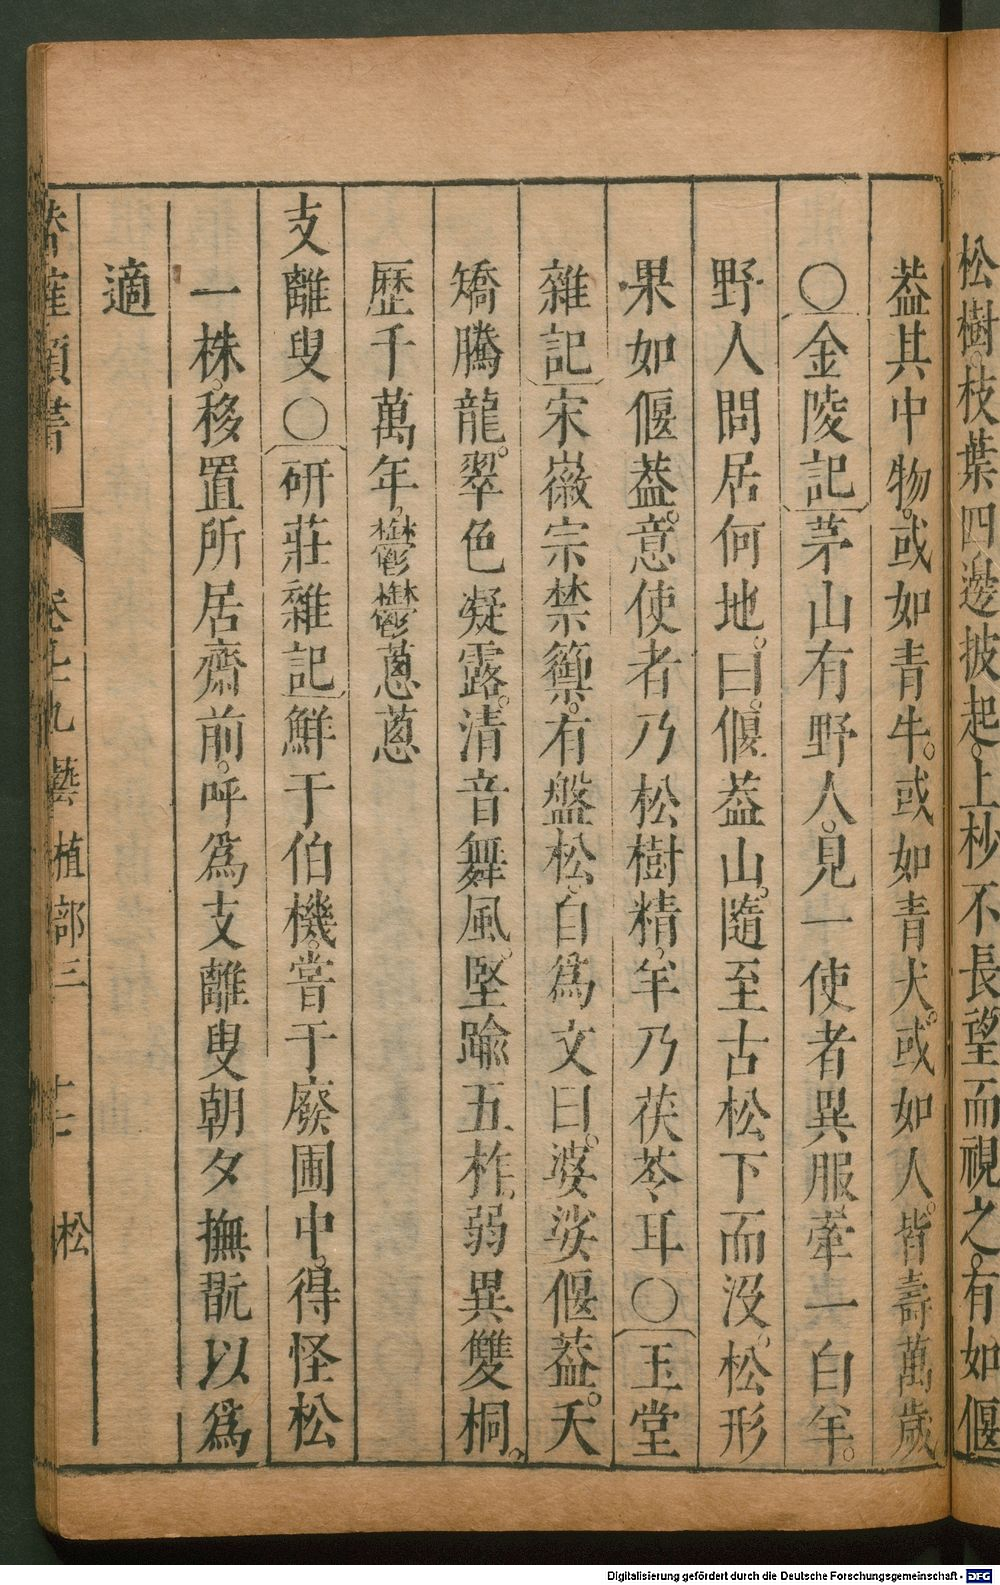 松樹。枝葉四邊披起。上杪不長望而視之。有如偃
葢其中物。或如青牛。或如青犬。或如人。皆壽萬歲
〇金陵記茅山有野人。見一使者異服牽一白羊。
野人問居何地。曰。偃葢山。隨至古松下而沒。松形
果如偃葢。意使者乃松樹精。羊乃茯苓耳〇玉堂
雜記宋徽宗禁籞。有盤松。自為文曰。婆娑偃葢。夭
矯騰龍。翠色凝露。清音舞風。堅踰五柞。弱異雙桐。
歷千萬年。鬱鬱蔥蔥
支離叟〇研莊雜記鮮于伯機。嘗于廢圃中。得怪松
一株。移置所居齋前。呼為支離叟朝夕撫翫以為
適
類書 卷 九 藝植部三 松
Digitalisierung gefördert durch die Deutsche Forschungsgemeinschaft - DFG